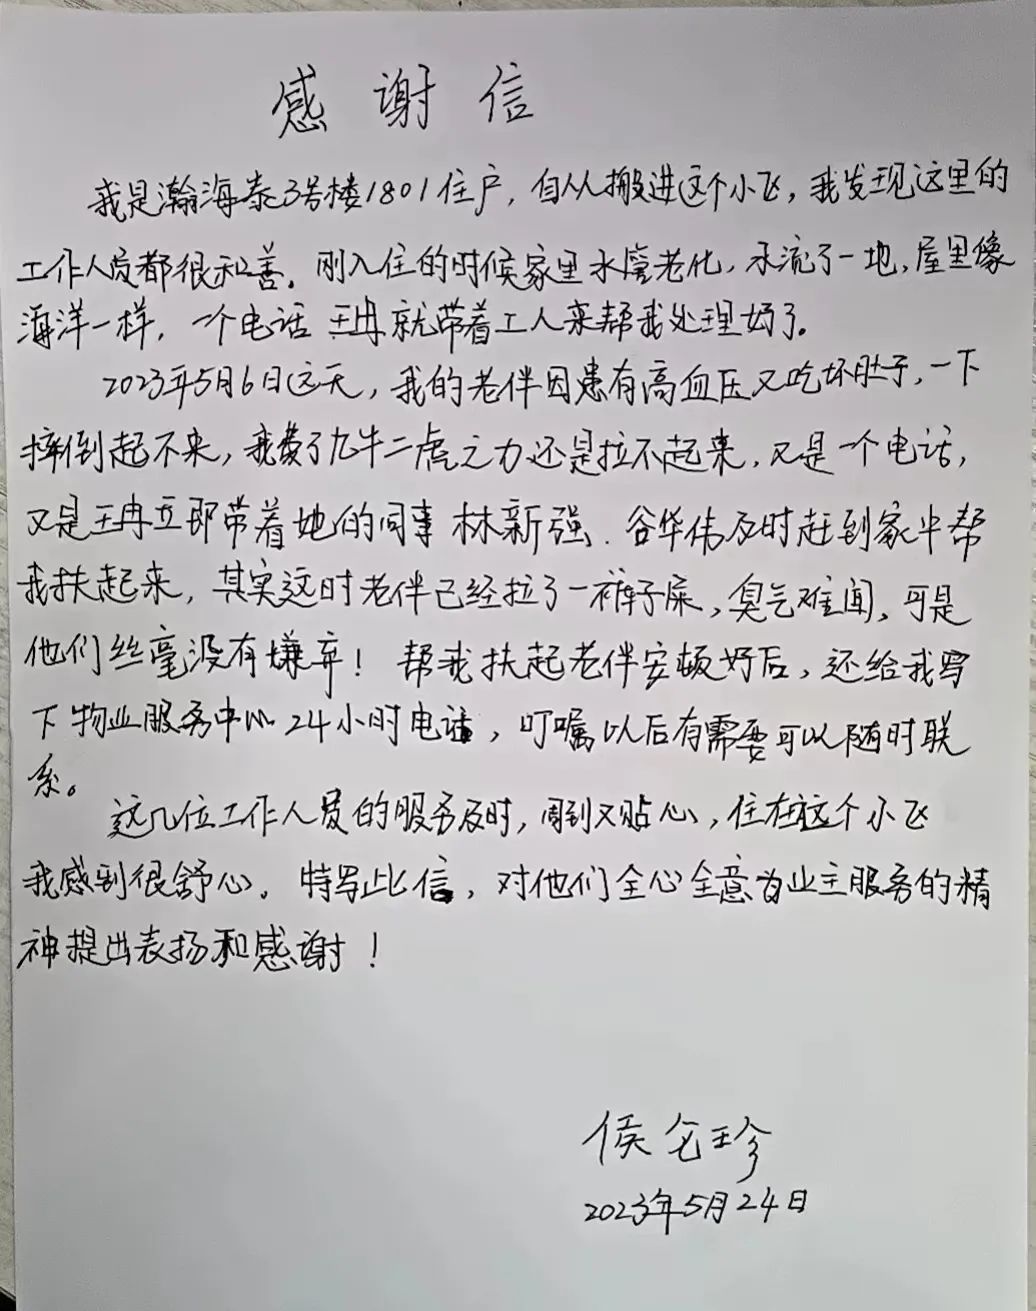 感谢信
我是瀚海泰3号楼1801住户，自从搬进这个小区，我发现这里的
工作人员都很和善。刚入住的时候家里水管老化，水流了一地，屋里像
海洋一样，一个电话 王冉就带着工人来帮我处理好了。
2023年5月6日这天，我的老伴因患有高血压又吃坏肚子，一下
摔倒起不来，我费了九牛二虎之力还是拉不起来，又是一个电话，
又是王冉立即带着她的同事林新强、谷华伟及时赶到家中帮
我扶起来，其实这时老伴已经拉了一裤子屎，臭气难闻，可是
他们丝毫没有嫌弃！帮我扶起老伴安顿好后，还给我写
下物业服务中心24小时电话，叮嘱以后有需要可以随时联
系。
这几位工作人员的服务及时，周到又贴心，住在这个小区
我感到很舒心。特写此信，对他们全心全意为业主服务的精
神提出表扬和感谢！
侯 珍
2023年5月24日